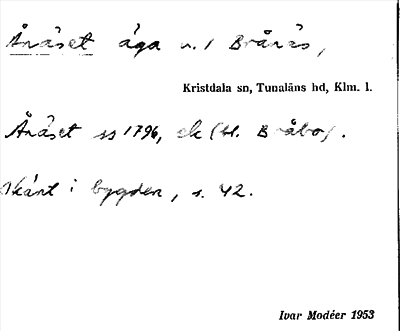 Ånäset äga u. / Brånäs,
Kristdala sn, Tunaläns hd, Klm. l.
Ånäset ss 1796, ek (tl. Bråbo).
i bygden, s. 42.
Ivar Modéer 1953